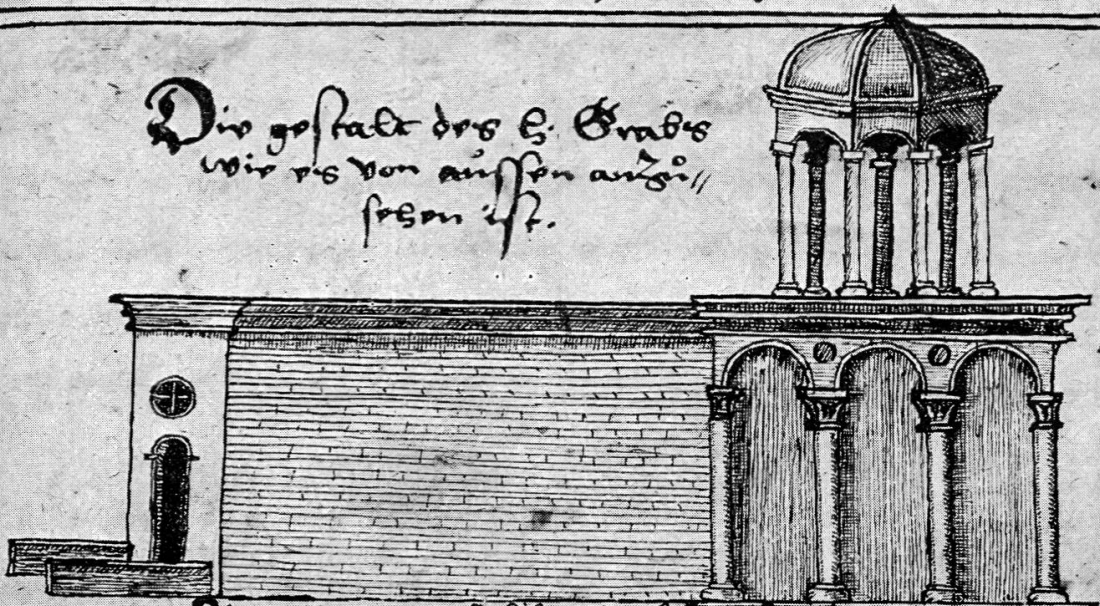 Die gestalt des h. Grabs
wie es von aussen anzu„
sehen ist.